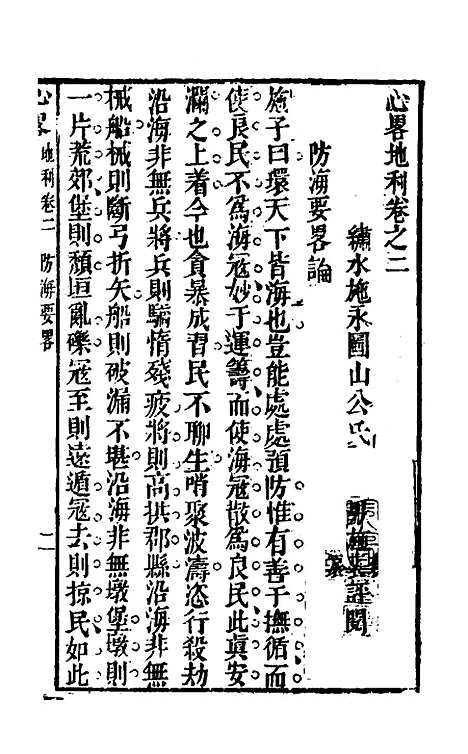 心畧地利卷之二
繡水施永圖山公氏
評閱
防海要畧論
施子曰環天下皆海也豈能處處預防惟有善于撫循而
使良民不爲海冦妙于運籌而使海冦散爲良民此真安
瀾之上着今也貪暴成習民不聊生哨聚波濤恣行殺劫
沿海非無兵將兵則驕惰殘疲將則高拱郡縣沿海非無
械船械則斷弓折矢船則破漏不堪沿海非無墩堡墩則
一片荒郊堡則頹垣亂礫冦至則遠遁冦去則掠民如此
心畧 地利卷二 防海要畧 一